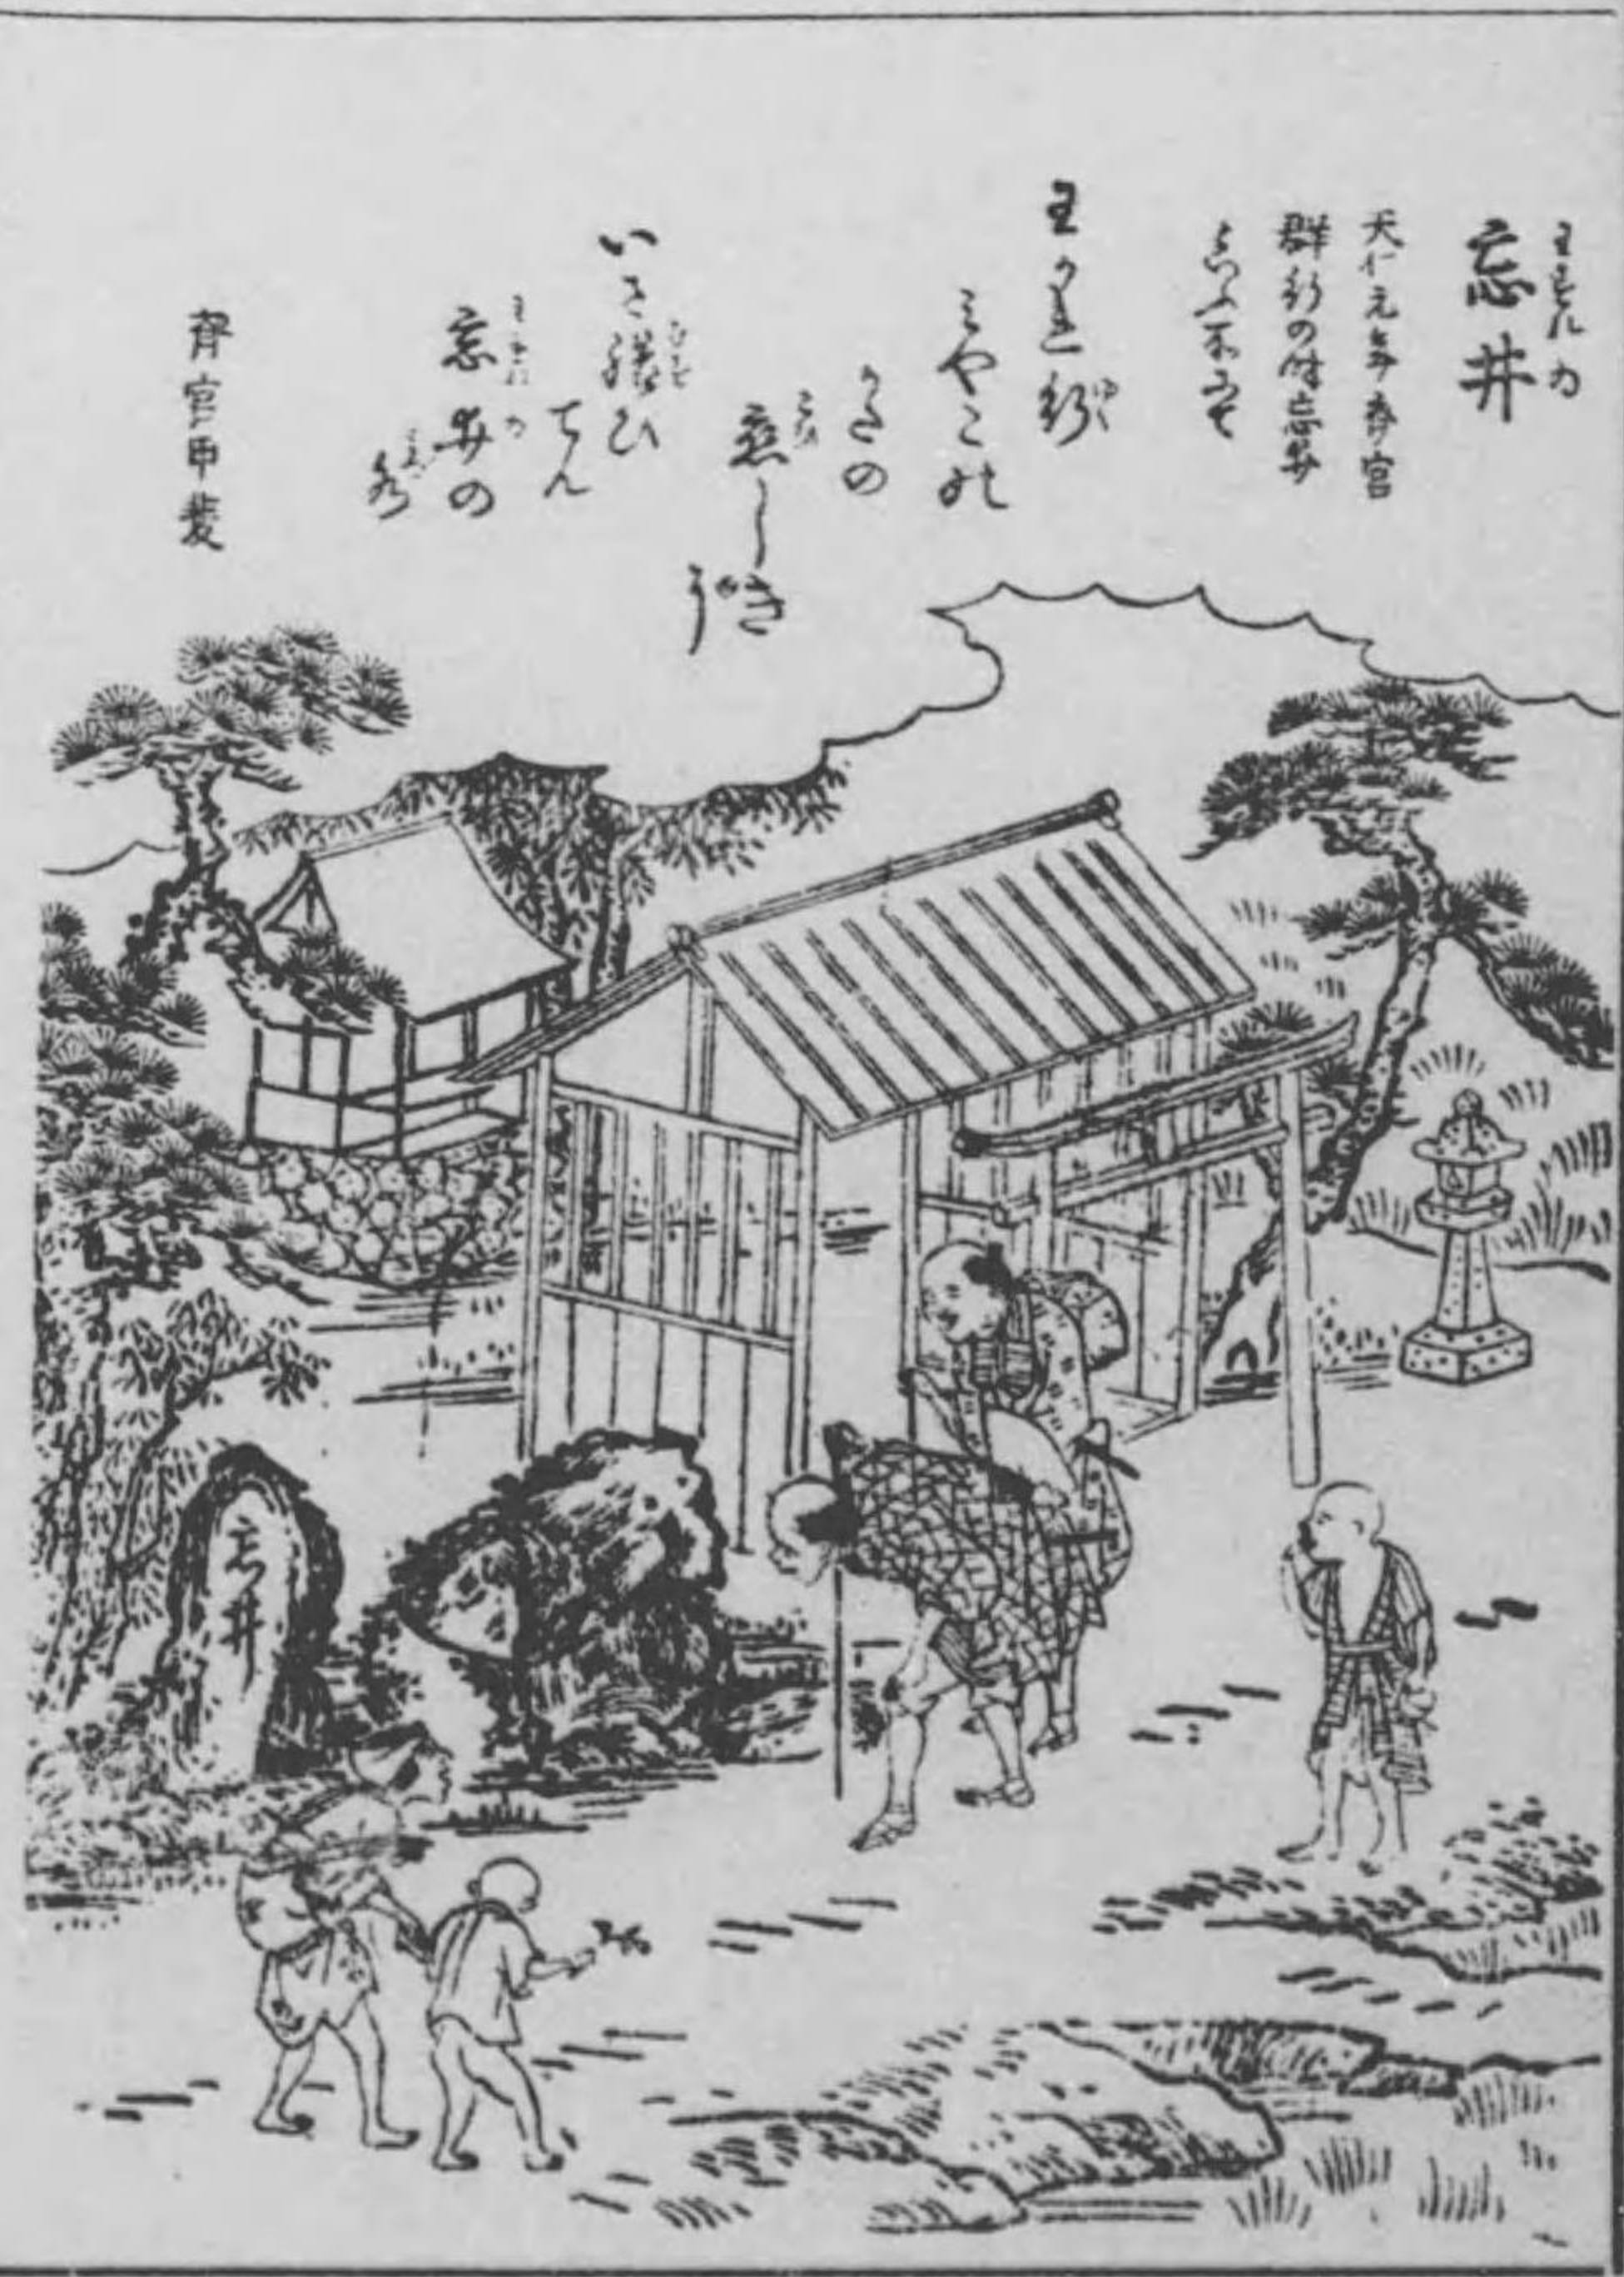 わすれゐ
忘井
天仁元年斎宮
群行の時忘井
といふ所にて
わかれ行
みやこの
かたの
恋しき
に
いさ結ひ
てん
忘井の
水
斎宮甲斐
忘井